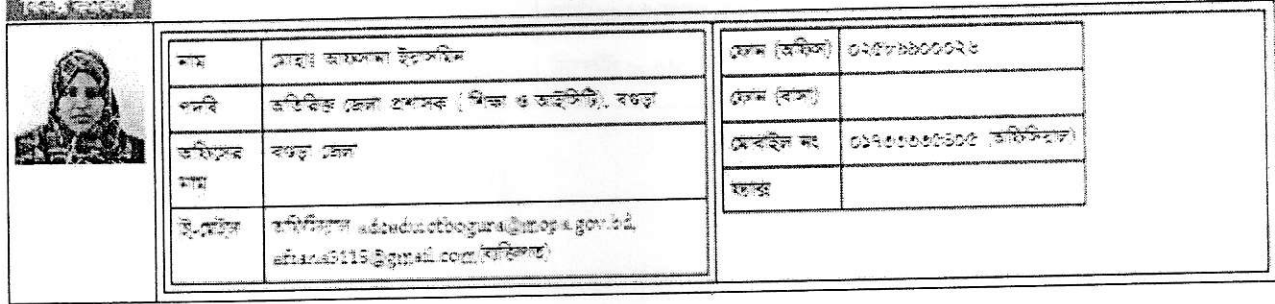 নাম মোছাঃ আফসানা ইয়াসমিন
পদবি অতিরিক্ত জেলা প্রশাসক ( শিক্ষা ও আইসিটি), বগুড়া
অফিসের নাম বগুড়া জেলা
ই-মেইল অফিসিয়াল adceductbogura@mopa.gov.bd,
@gmail.com(ব্যক্তিগত)
ফোন (অফিস) ০২৫৮৯৯০০০২৬
ফোন (বাসা)
মোবাইল নং (অফিসিয়াল)
ফ্যাক্স